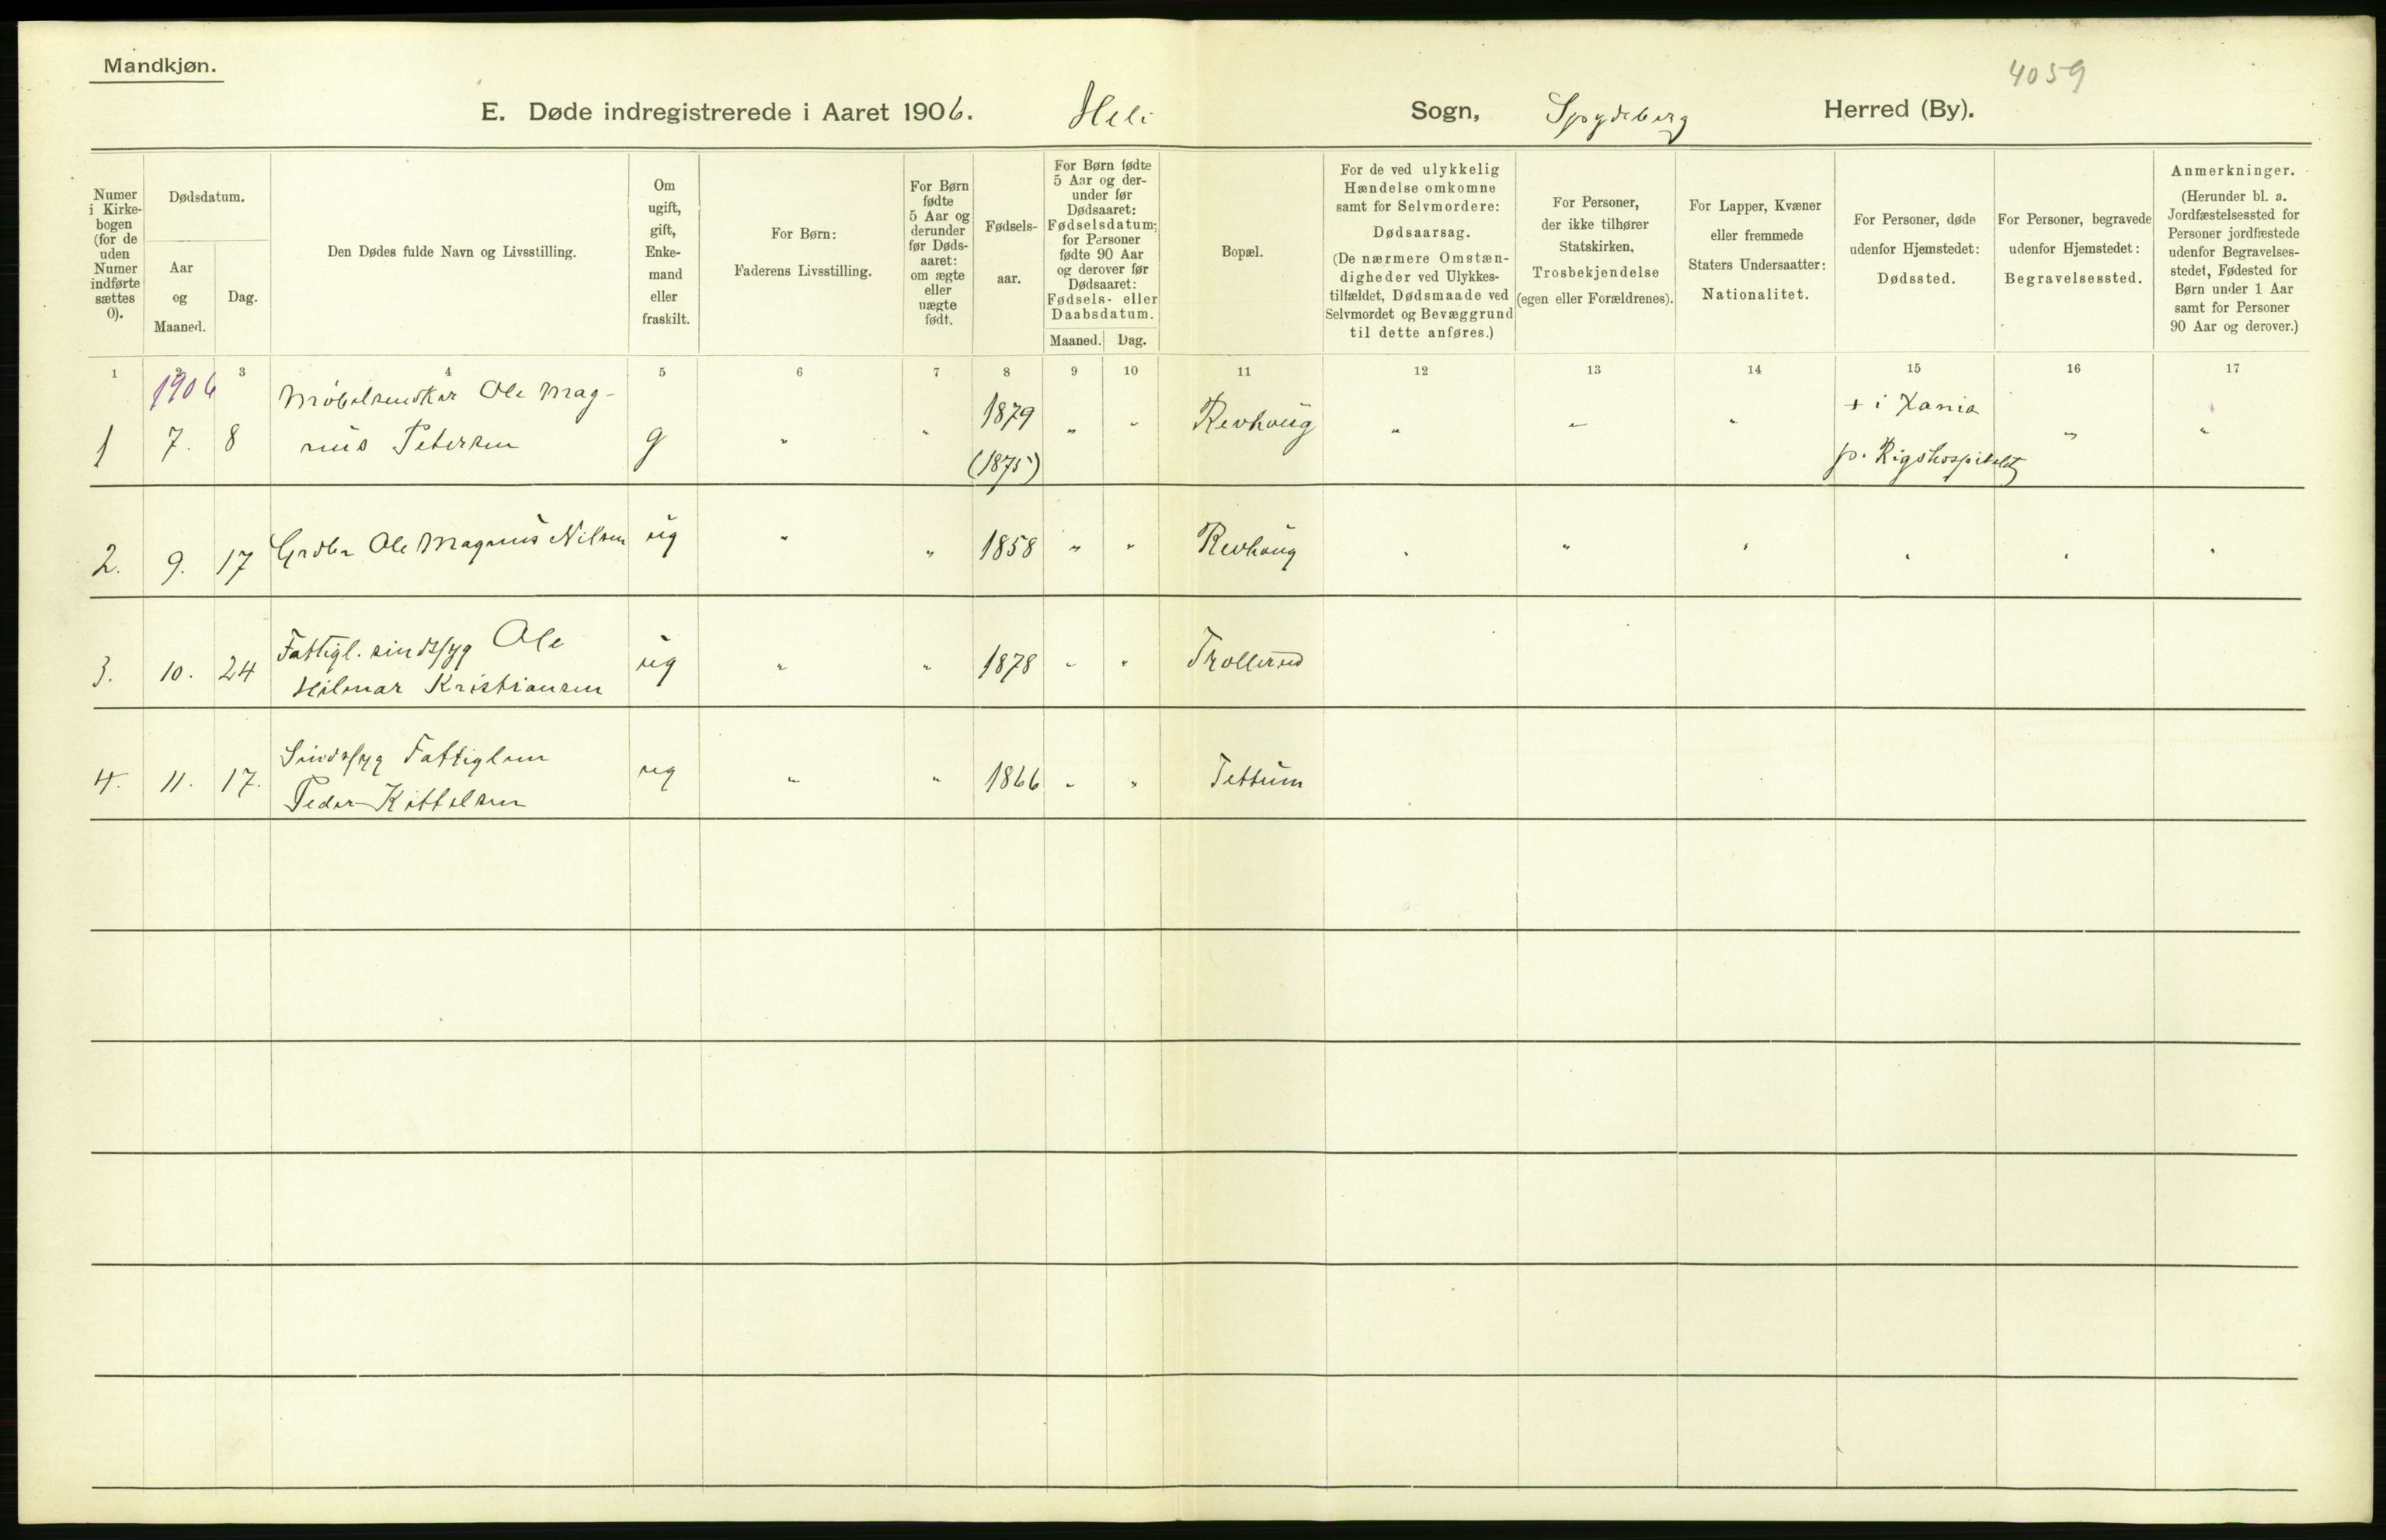 Mandkjøn.
4059
E. Døde indregistrerede i Aaret 1906. Heli Sogn, Spydeberg Herred (By).
Numer i Kirkebogen (for de uden Numer indførte sættes 0).
Dødsdatum.
Aar og Maaned.
Dag.
Den Dødes fulde Navn og Livsstilling.
Om ugift, gift, Enkemand eller fraskilt.
For Børn: Faderens Livsstilling.
For Børn fødte 5 Aar og derunder før Dødsaaret: om ægte eller uægte født.
Fødselsaar.
For Børn fødte 5 Aar og derunder før Dødsaaret: Fødselsdatum; for Personer fødte 90 Aar og derover før Dødsaaret: Fødsels- eller Daabsdatum.
Maaned. Dag.
Bopæl.
For de ved ulykkelig Hændelse omkomne samt for Selvmordere: Dødsaarsag. (De nærmere Omstændigheder ved Ulykkestilfældet, Dødsmaade ved Selvmordet og Bevæggrund til dette anføres.)
For Personer, der ikke tilhører Statskirken, Trosbekjendelse (egen eller Forældrenes).
For Lapper, Kvæner eller fremmede Staters Undersaatter: Nationalitet.
For Personer, døde udenfor Hjemstedet: Dødssted.
For Personer, begravede udenfor Hjemstedet: Begravelsessted.
Anmerkninger. (Herunder bl. a. Jordfæstelsessted for Personer jordfæstede udenfor Begravelsesstedet, Fødested for Børn under 1 Aar samt for Personer 90 Aar og derover.)
1 2 3 4 5 6 7 8 9 10 11 12 13 14 15 16 17
1906
Møbelsnedker Ole Mag-
1 7. 8 nus Petersen g " " 1879 " " Revhoug " " " + i Xania " "
(1875) p. Rigshospitalet
2. 9. 17 Grdbr Ole Magnus Nilsen ug " " 1858 " " Revhoug " " " " " "
Fattigl. sindssyg Ole
3. 10. 24 Hilmar Kristiansen ug " " 1878 " " Trollerud
Sindssyg Fattiglem
4. 11. 17. Peder Kittelsen ug " " 1866 " " Tettum